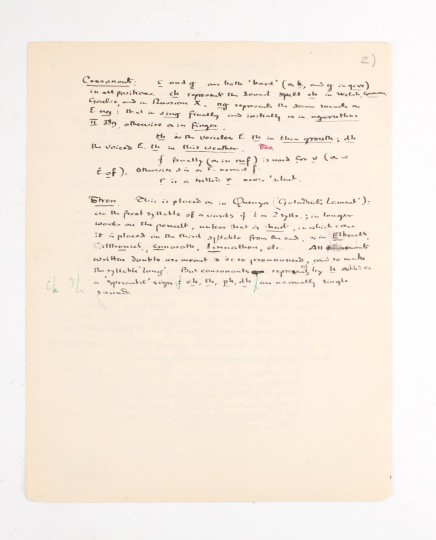 2)
Consonants: c and g are both 'hard' (as k, and g in give)
in all positions. ch represents the sound spelt ch in Welsh, German,
Gaelic, and in Russian X. ng represents the same sounds as
E. ng: that in sing finally and initially as in
II 339, otherwise as in finger.
th is the voiceless E. th in thin growth; dh
the voiced E. th in this weather.
f finally (as in nuf) is used for v (as in
E of). Otherwise it is as E. normal f.
r is a trilled r never silent.
Stress. This is placed as in Quenya (Galadriel's Lament):
on the first syllable of a words of 1 or 2 sylls.; in longer
words on the penult, unless that is short, in which case
it is placed on the third syllable from the end, as in Elbereth,
Gilthoniel, ennorath, linnathon, etc. All
written doubles are meant to be so pronounced, and so make
the syllable 'long'. But consonants represented by h added as
a 'spirantal' sign: ch, th, ph, dh are normally single
sounds.